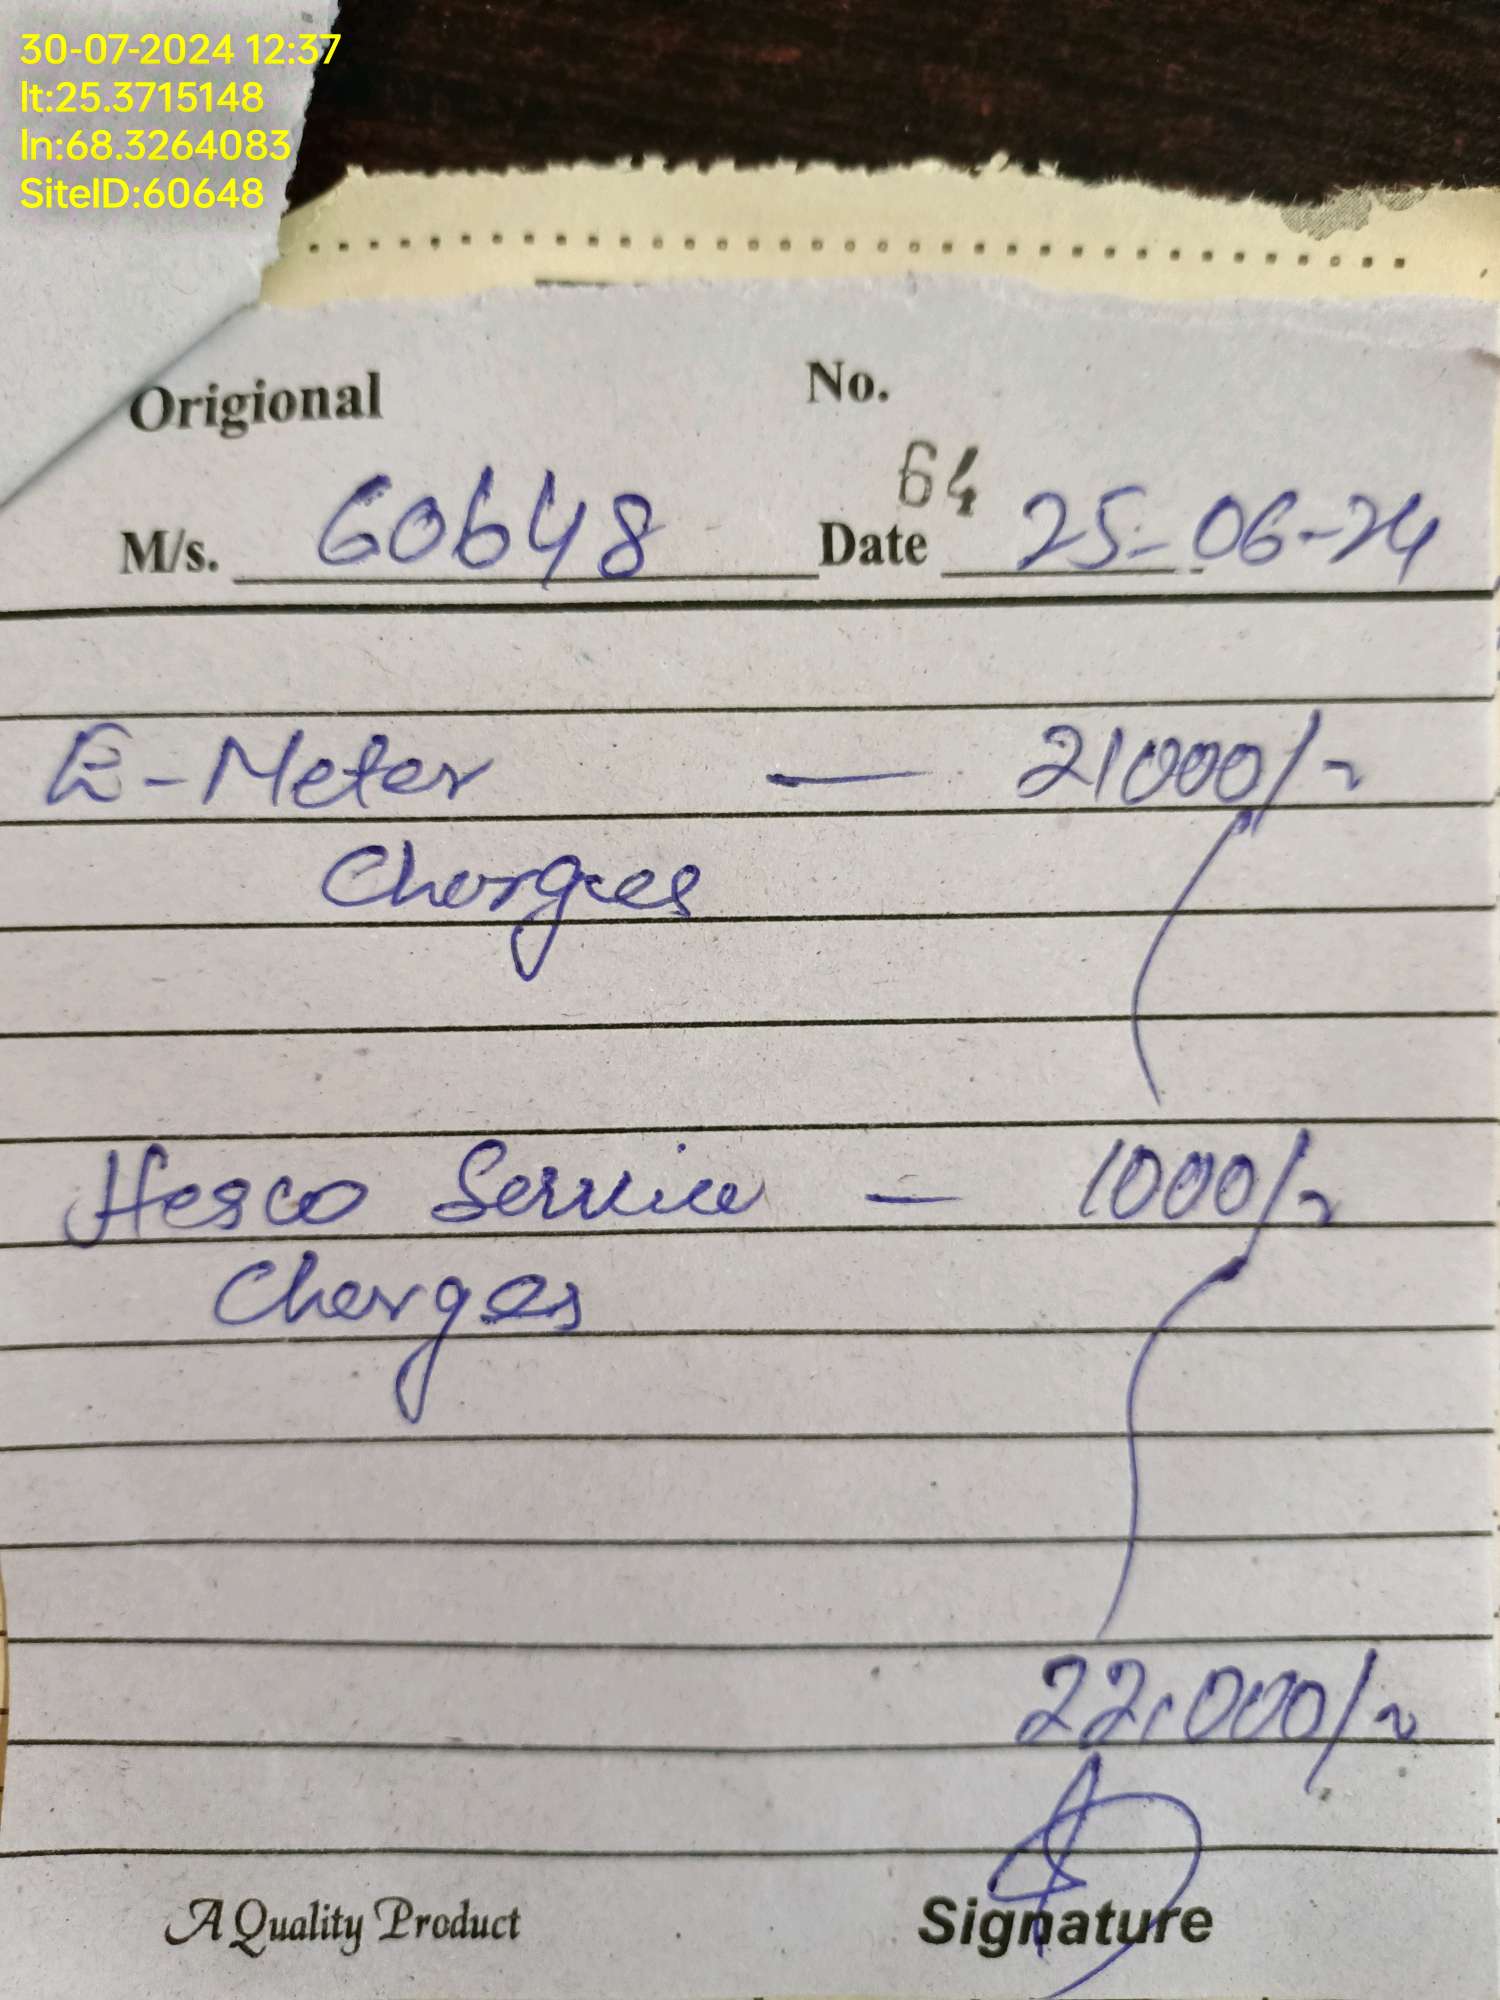 30-07-2024 12:37
lt:25.3715148
ln:68.3264083
SiteID:60648
Origional No.
64
M/s. 60648 Date 25-06-24
E-Meter — 21000/~
Charges
Hesco Service — 1000/~
Charges
22,000/~
A Quality Product Signature